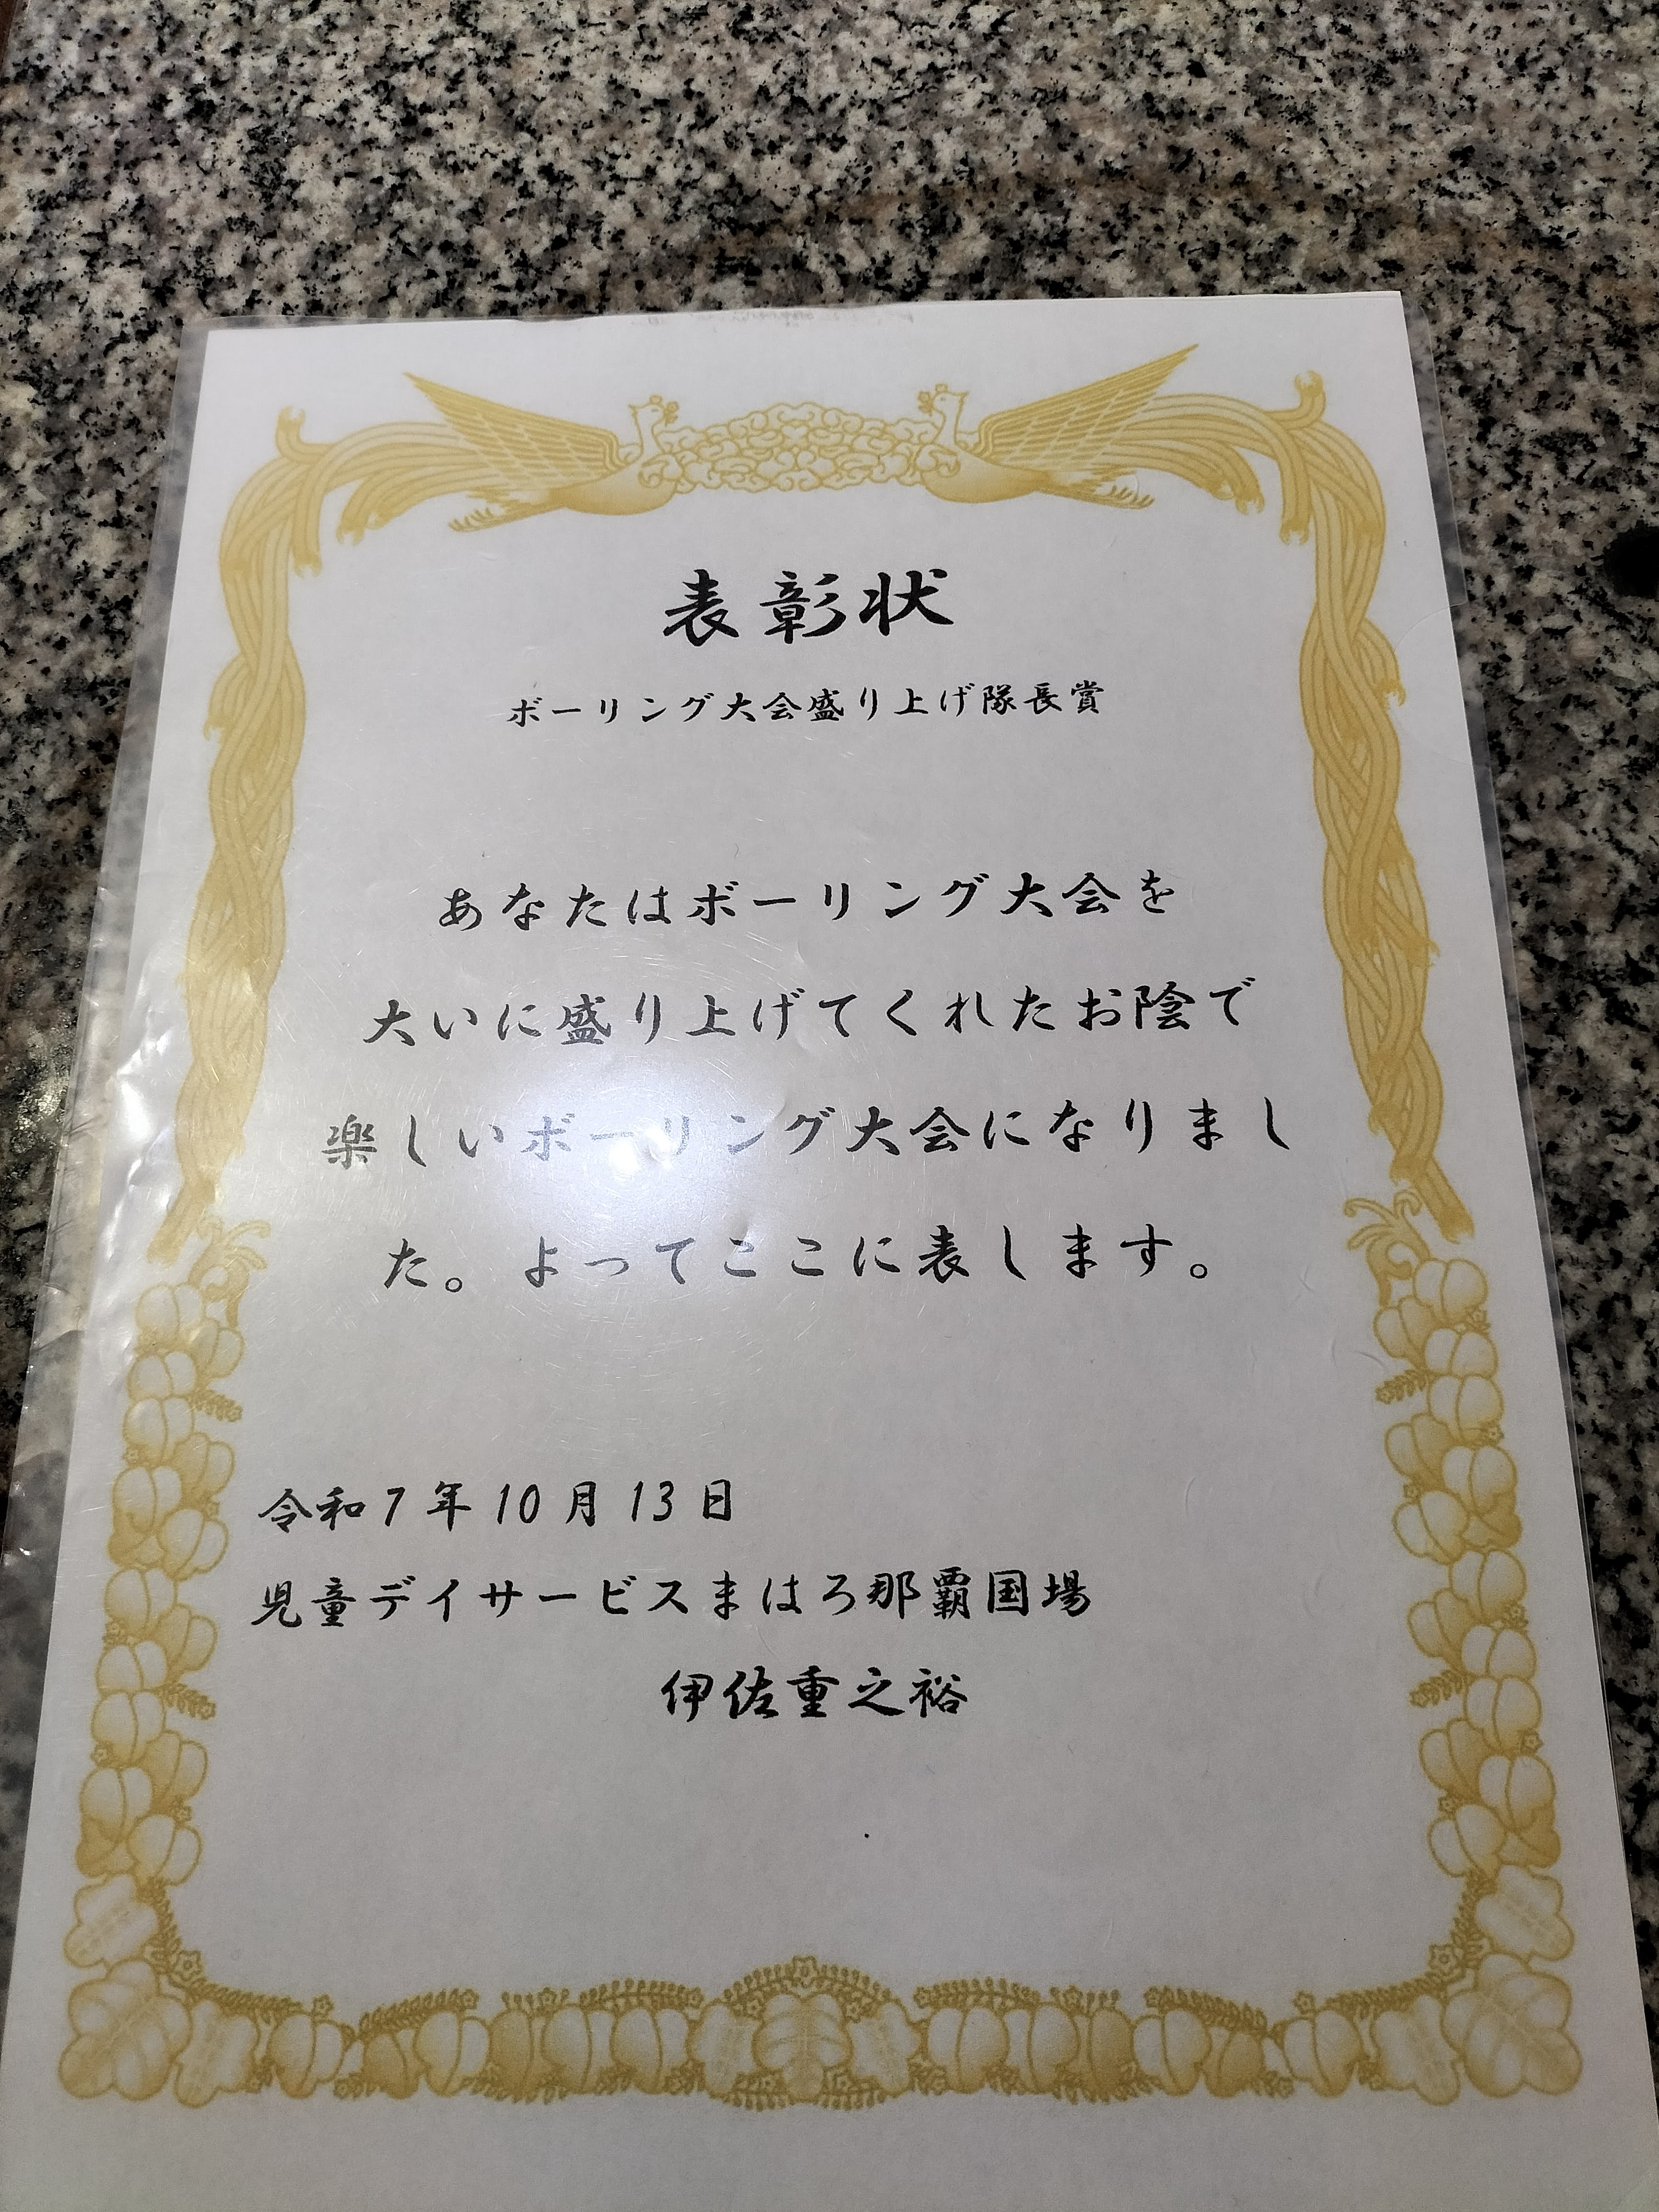 表彰状
ボーリング大会盛り上げ隊長賞
あなたはボーリング大会を
大いに盛り上げてくれたお陰で
楽しいボーリング大会になりまし
た。よってここに表します。
令和7年10月13日
児童デイサービスまはろ那覇国場
伊佐重之裕